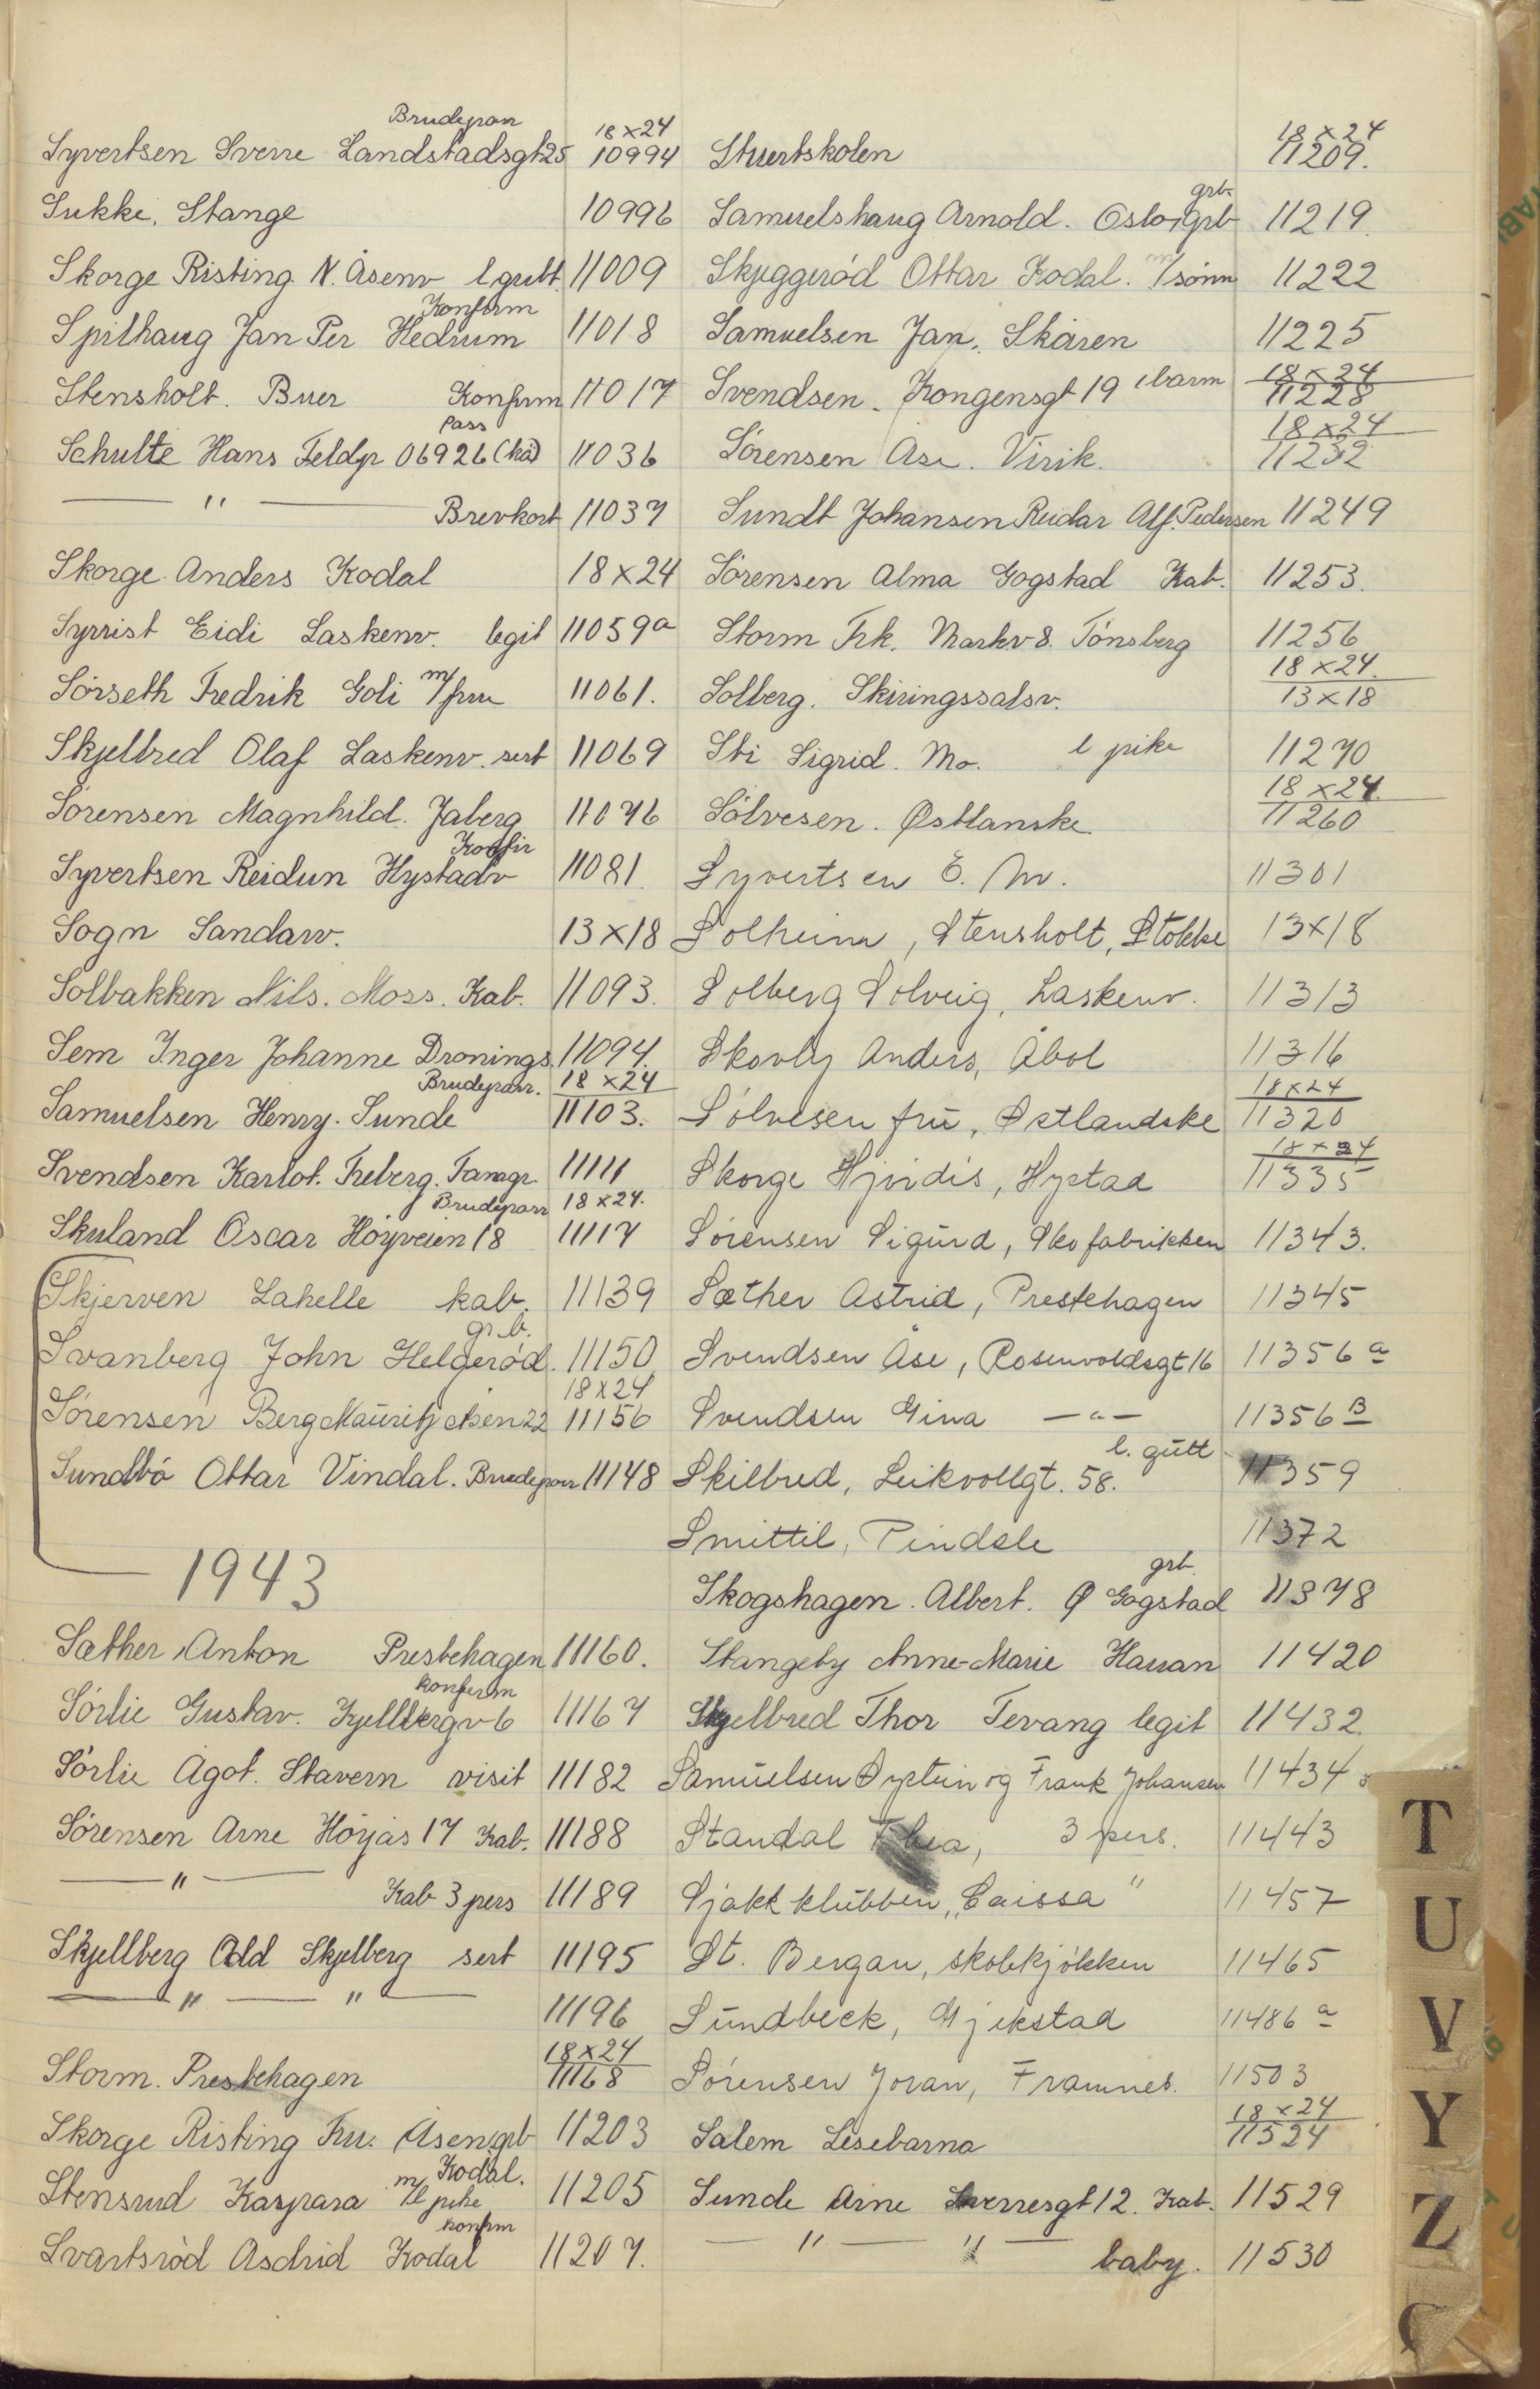 Brudepar 18x24
Syvertsen Sverre Landstadsgt 25 10994
Sukke. Stange 10996
Skorge Risting. N. Åsenv l. gutt 11009
Konfirm
Spilhaug Jan Per Hedrum 11018
Stensholt. Buer Konfirm 11017
Pass
Schulte Hans Feldp 06926 11036
— " — Brevkort 11037
Skorge. Anders Kodal 18x24
Syrrist Eidi Laskenv. legit 11059a
Sörseth Fredrik Goli m/fru 11061.
Skjelbred Olaf Laskenv. sert 11069
Sörensen Magnhild. Jaberg 11076
Konfir
Syvertsen Reidun Hystadv 11081
Sogn Sandarv. 13x18
Solbakken Nils. Moss. Kab. 11093.
Sem Inger Johanne Dronings. 11094.
Brudeparr. 18x24
Samuelsen Henry. Sunde 11103.
Svendsen Karlot. Freberg. Famgr. 11111
Brudeparr 18x24.
Skuland Oscar Höyveien 18 11117
Skjerven Lahelle kab. 11139
gr.b.
Svanberg John Helgeröd. 11150
18x24
Sörensen Berg Mauritz Åsen 22 11156
Sundbö Ottar Vindal. Brudeparr 11148
1943
Sæther, Anton Prestehagen 11160.
konferm
Sörlie Gustav. Kjellbergv 6 11167
Sörlie Agot. Stavern visit 11182
Sörensen Arne Höyjas 17 Kab. 11188
— " — Kab 3 pers 11189
Skjellberg Odd Skjelberg sert 11195
— " — " — 11196
18x24
Storm. Prestehagen 11168
Skorge Risting Fru. Åsen grb 11203
Kodal.
Stensrud Kaspara m/l pike 11205
konfirm
Svartsröd Asdrid Kodal 11207.
18x24
Stuertskolen 11209.
grb.
Samuelshaug Arnold. Oslo, grb 11219.
Skjeggeröd Ottar Kodal. m/sönn 11222
Samuelsen Jan. Skåren 11225
18x24
Svendsen. Kongensgt 19 1 barn 11228
18x24
Sörensen Åse. Virik. 11232
Sundt Johansen Reidar Alf. Pedersen 11249
Sörensen Alma Gogstad Kab. 11253.
Storm Frk. Markv 8. Tönsberg 11256
18x24.
Solberg. Skiringssalsv. 13x18
Sti Sigrid. Mo. l pike 11270
18x24.
Sölvesen. Østlanske. 11260
Syvertsen E. M. 11301
Solheim, Stensholt, Stokke 13x18
Solberg Solveig, Laskenv. 11313
Skovly Anders, Åbol 11316
18x24
Sølvesen fru, Østlandske 11320
18x24
Skorge Hjördis, Hystad 11335
Sörensen Sigurd, Skofabrikken 11343.
Sæther Astrid, Prestehagen 11345
Svendsen Åse, Rosenvoldsgt 16 11356 a
Svendsen Gina — " — 11356 B
l. gutt
Skilbred, Leikvollgt. 58. 11359
Smittil, Pindsle 11372
grb.
Skogshagen. Albert. Ø Gogstad 11378
Stangeby Anne-Marie Haran 11420
Skjelbred Thor Tevang legit 11432.
Samuelsen Øystein og Frank Johansen 11434
Standal Thea, 3 pers. 11443
Sjakk klubben „Caissa" 11457
St. Bergan, skolekjökken 11465
Sundbeck, Gjekstad 11486 a
Sörensen Joran, Framnes. 11503
18x24
Salem Lesebarna 11524
Sunde Arne Sverresgt 12. Kab. 11529
— " — " — baby. 11530
T
U
V
Y
Z